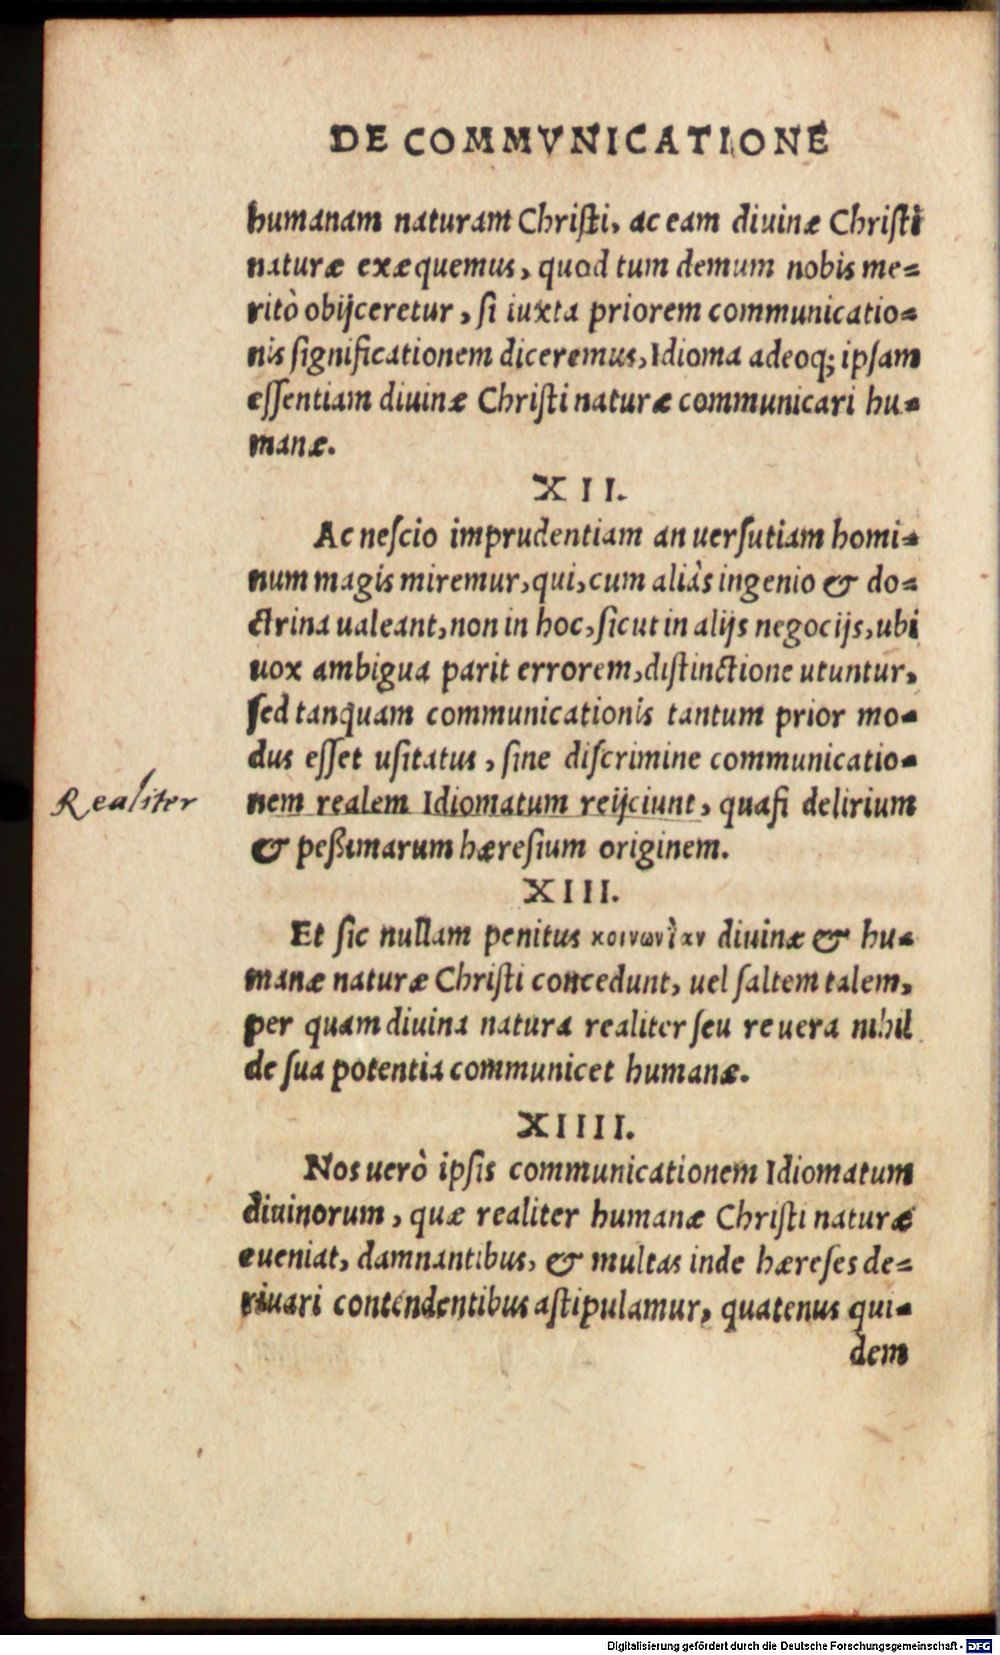 DE COMMVNICATIONE
humanam naturam Christi, ac eam diuinæ Christi
naturæ exæquemus, quod tum demum nobis me=
ritò obijceretur, si iuxta priorem communicatio=
nis significationem diceremus, Idioma adeoq; ipsam
essentiam diuinæ Christi naturæ communicari hu=
manæ.
XII.
Ac nescio imprudentiam an uersutiam homi=
num magis miremur, qui, cum aliàs ingenio & do=
ctrina ualeant, non in hoc, sicut in alijs negocijs, ubi
uox ambigua parit errorem, distinctione utuntur,
sed tanquam communicationis tantum prior mo=
dus esset usitatus, sine discrimine communicatio=
Realiter
nem realem Idiomatum reijciunt, quasi delirium
& peßimarum hæresium originem.
XIII.
Et sic nullam penitus κοινωνίαν diuinæ & hu=
manæ naturæ Christi concedunt, uel saltem talem,
per quam diuina natura realiter seu reuera nihil
de sua potentia communicet humanæ.
XIIII.
Nos uerò ipsis communicationem Idiomatum
diuinorum, quæ realiter humanæ Christi naturæ
eueniat, damnantibus, & multas inde hæreses de=
riuari contendentibus astipulamur, quatenus qui=
dem
Digitalisierung gefördert durch die Deutsche Forschungsgemeinschaft - DFG